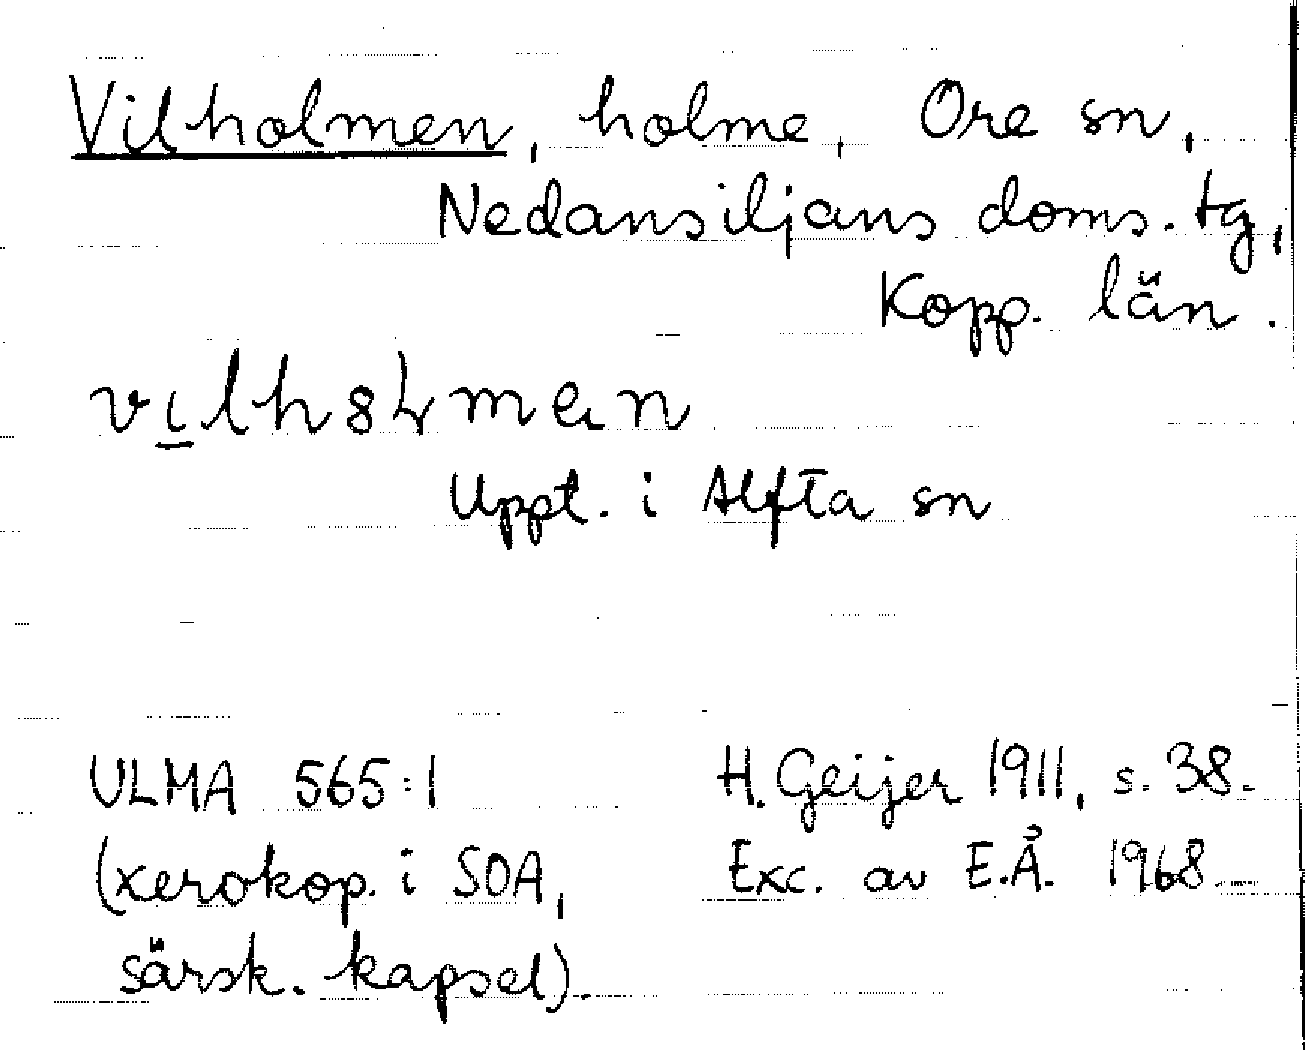 Vilholmen, holme, Ore sn,
Nedansiljans doms. tg,
Kopp. län.
Uppt. i Alfta sn
ULMA 565:1
(xerokop. i SOA,
särsk. kapsel).
H. Geijer 1911, s. 38.
Exc. av E.Å. 1968.